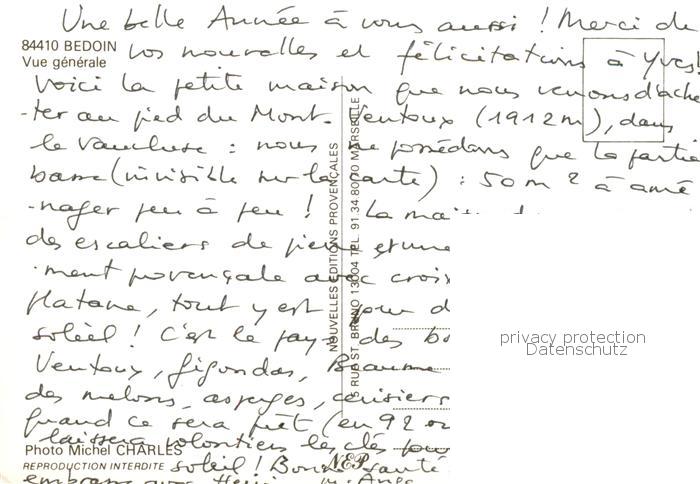 Une belle Année à vous aussi ! Merci de
84410 BEDOIN
Vue générale
vos nouvelles et félicitations à Yves!
Voici la petite maison que nous venons d'ache
-ter au pied du Mont-Ventoux (1912m), dans
le Vaucluse : nous ne possédons que la partie
basse (invisible sur la carte) : 50 m2 à amé
-nager peu à peu ! La
des escaliers de pierre et une
-ment provençale avec
platane, tout y est pour
soleil ! C'est le pays des
Ventoux, Gigondas, Beaume
des melons, asperges, cerisiers
quand ce sera prêt (en 92 ou
laissera volontiers les clés pour
Photo Michel CHARLES
REPRODUCTION INTERDITE
soleil ! Bonne santé
NEP
NOUVELLES EDITIONS PROVENÇALES
5 RUE ST. BRUNO 13004 TEL. 91.34.80.00 MARSEILLE
privacy protection
Datenschutz